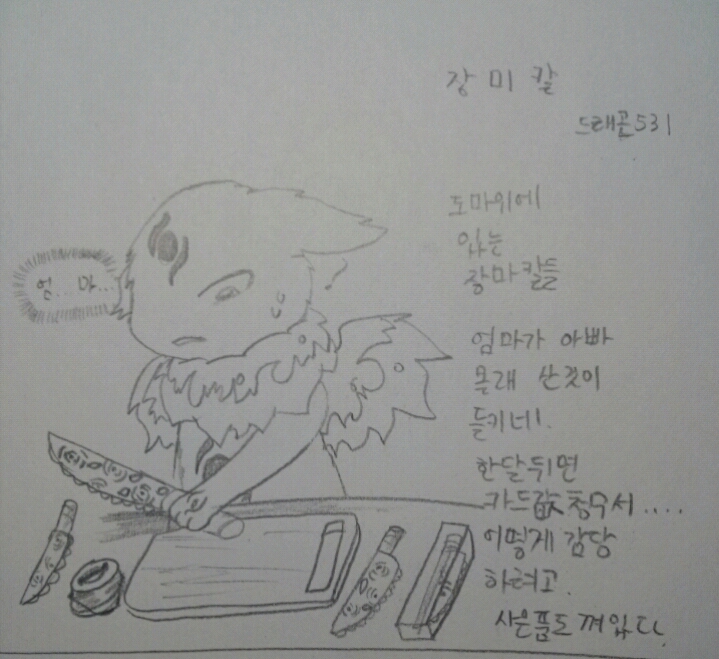 장 미 칼
드래곤531
엄.. 마...
도마위에
있는
장미칼들
엄마가 아빠
몰래 산것이
들키네!.
한달뒤면
카드값청구서....
어떻게 감당
하려고.
사은품도 껴있다.